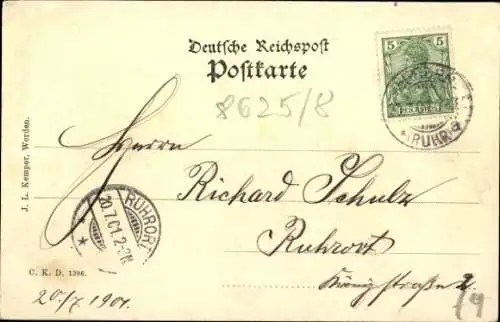 Deutsche Reichspost
Postkarte
5 5
8625/8
(RUHR)
J. L. Kemper, Werden.
Herrn
Richard Schulz
RUHRORT
20.7.01. 2-3N
* *
Ruhrort
Königstraße 2
C. K. D. 1396.
20/7 1901.